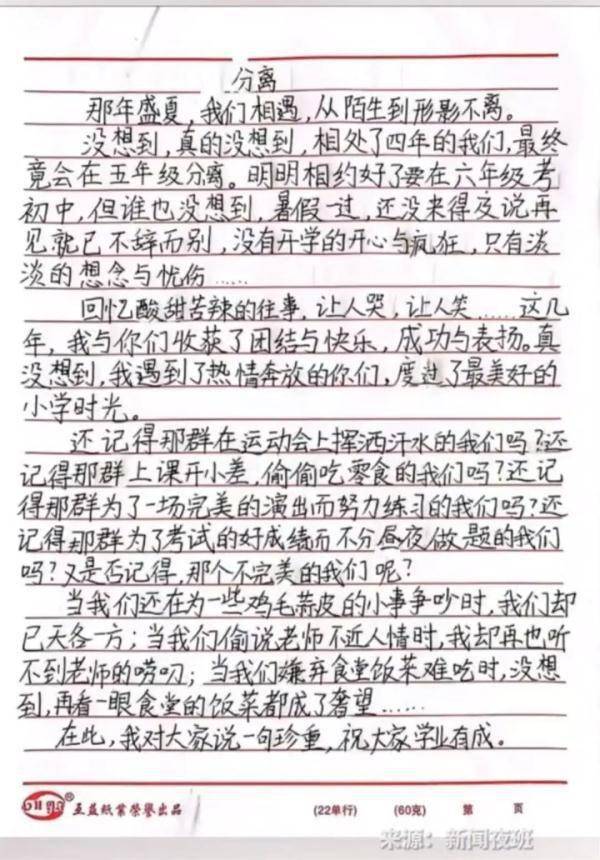 分离
那年盛夏，我们相遇，从陌生到形影不离。
没想到，真的没想到，相处了四年的我们，最终
竟会在五年级分离。明明相约好了要在六年级考
初中，但谁也没想到，暑假一过，还没来得及说再
见就已不辞而别，没有开学的开心与疯狂，只有淡
淡的想念与忧伤……
回忆酸甜苦辣的往事，让人哭，让人笑……这几
年，我与你们收获了团结与快乐，成功与表扬。真
没想到，我遇到了热情奔放的你们，度过了最美好的
小学时光。
还记得那群在运动会上挥洒汗水的我们吗？还
记得那群上课开小差，偷偷吃零食的我们吗？还记
得那群为了一场完美的演出而努力练习的我们吗？还
记得那群为了考试的好成绩而不分昼夜做题的我们
吗？又是否记得，那个不完美的我们呢？
当我们还在为一些鸡毛蒜皮的小事争吵时，我们却
已天各一方；当我们偷说老师不近人情时，我却再也听
不到老师的唠叨；当我们嫌弃食堂饭菜难吃时，没想
到，再看一眼食堂的饭菜都成了奢望……
在此，我对大家说一句珍重，祝大家学业有成。
玉益纸业荣誉出品 (22单行) (60克) 第 页
来源：新闻夜班